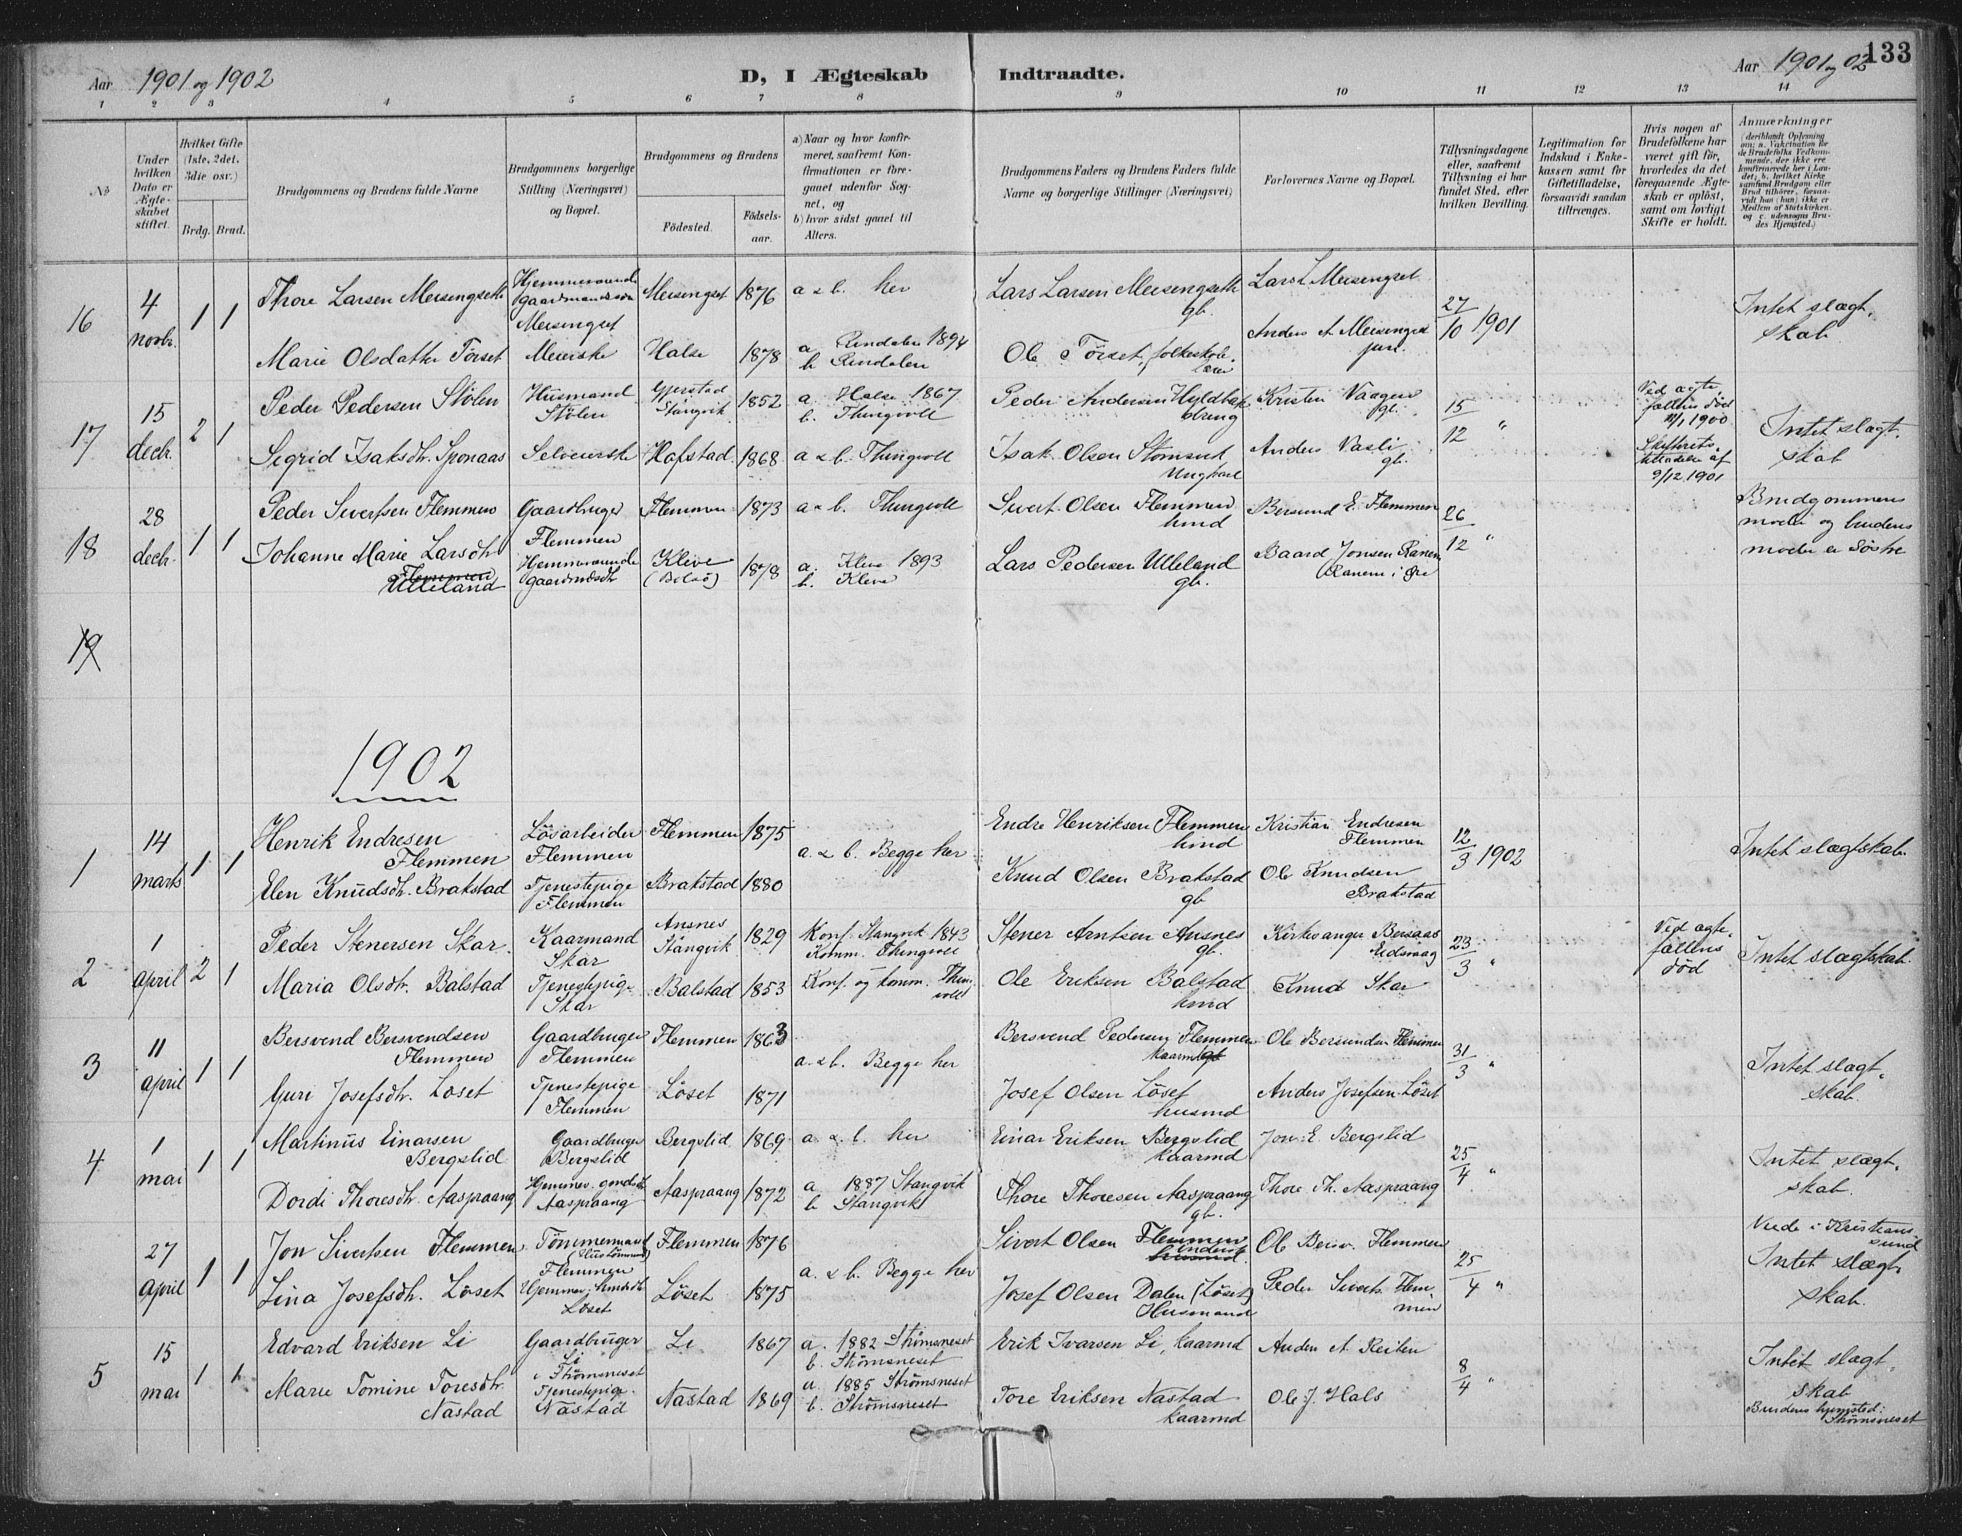 Aar 1901 og 1902
D, I Ægteskab Indtraadte.
Aar 1901 og 02
133
1 2 3 4 5 6 7 8 9 10 11 12 13 14
No
Under hvilken Dato er Ægteskabet stiftet.
Hvilket Gifte (1ste, 2det, 3die osv.)
Brdg. Brud.
Brudgommens og Brudens fulde Navne
Brudgommens borgerlige Stilling (Næringsvei) og Bopæl.
Brudgommens og Brudens
Fødested. Fødselsaar.
a) Naar og hvor konfirmeret, saafremt Konfirmationen er foregaaet udenfor Sognet, og
b) hvor sidst gaaet til Alters.
Brudgommens Faders og Brudens Faders fulde Navne og borgerlige Stillinger (Næringsvei)
Forlovernes Navne og Bopæl.
Tillysningsdagene eller, saafremt Tillysning ei har fundet Sted, efter hvilken Bevilling.
Legitimation for Indskud i Enkekassen samt for Giftetilladelse, forsaavidt saadan tiltrænges.
Hvis nogen af Brudefolkene har været gift før, hvorledes da det foregaaende Ægteskab er opløst, samt om lovligt Skifte er holdt.
Anmærkninger
16 4 novbr. 1 1
Thore Larsen Meisengseth Hjemmeværende Gaardmandssøn Meisengset Meisengset 1876 a & b. her Lars Larsen Meisengseth gb. Lars L Meisengset 27/10 1901 Intet slægtskab
Marie Olsdatter Tørset Meierske Halse 1878 a. Rindalen 1894 b. Rindalen Ole Tørset, folkeskolelærer Anders A. Meisengset jun.
17 15 decbr. 2 1
Peder Pedersen Stølen Husmand Stølen Stangvik 1852 a. Halse 1867 b. Thingvoll Peder Andersen Kristen Vaagen gb. 15/12 " Ved ægtefællens død 1900 Intet slægtskab
Sigrid Isaksdtr. Sponaas Selveierske Hafstad 1868 a & b. Thingvoll Isak Olsen Ungkarl Anders Vasli gb. 9/12 1901
18 28 decbr. 1 1
Peder Sivertsen Flemmen Gaardbruger Flemmen Flemmen 1873 a & b. Thingvoll Sivert Olsen Flemmen hmd Bersvend E. Flemmen 26/12 " Brudgommens moder og brudens moder er Søstre
Johanne Marie Larsdtr. Ulleland Hjemmeværende Gaardmdsdtr. Kleive (Bolsø) 1878 a. Kleive 1893 b. Kleive Lars Pedersen Ulleland gb. Baard Jonsen Ranem Ranem i Øre
19
1902
1 14 marts 1 1
Henrik Endresen Flemmen Løsarbeider Flemmen Flemmen 1875 a. & b. Begge her Endre Henriksen Flemmen hmd Kristian Endresen Flemmen 12/3 1902 Intet slægtskab
Elen Knudsdtr. Brakstad Tjenestepige Flemmen Brakstad 1880 Knud Olsen Brakstad gb. Ole Knudsen Brakstad
2 1 april 2 1
Peder Stenersen Skar Kaarmand Skar Ansnes Stangvik 1829 Konf. Stangvik 1843 Komm. Thingvoll Stener Arntsen Ansnes gb. Kirkesanger Bersaas Eidsvaag 23/3 " Ved ægtefællens død Intet slægtskab.
Maria Olsdtr. Balstad Tjenestepig. Skar Balstad 1853 Konf. og komm. Thingvold Ole Eriksen Balstad hmd Knud Skar
3 11 april 1 1
Bersvend Bersvendsen Flemmen Gaardbruger Flemmen Flemmen 1863 a. & b. Begge her Bersvend Pedersen Flemmen kaarmd Ole Bersvendsen Flemmen 31/3 " Intet slægtskab.
Guri Josefsdtr. Løset Tjenestepige Flemmen Løset 1871 Josef Olsen Løset husmd Anders Josefsen Løset
4 1 mai 1 1
Martinus Einarsen Bergslid Gaardbruger Bergslid Bergslid 1869 a. & b. her Einar Eriksen Bergslid kaarmd Jon E. Bergslid 25/4 " Intet slægtskab.
Dordi Thoresdtr. Aaspraang Hjemmev. gmdsdtr. Aaspraang Aaspraang 1872 a. 1887 Stangvik b. Stangvik Thore Thoresen Aaspraang gb. Thore Th. Aaspraang
27 april 1 1
Jon Sivertsen Flemmen Tømmermand Flemmen Flemmen 1876 a. & b. Begge her Sivert Olsen Flemmen Ole Bersv. Flemmen 25/4 " Viede i Kristianssund Intet slægtskab.
Lina Josefsdtr. Løset Hjemmev. hmdsdtr. Løset Løset 1875 Josef Olsen Dalen (Løset) Husmand Peder Siverts. Flemmen
5 15 mai 1 1
Edvard Eriksen Li Gaardbruger Li i Strømsneset Li 1867 a. 1882 Strømsneset b. Strømsneset Erik Ivarsen Li, kaarmd Anders A. Reiten 8/4 " Intet slægtskab
Marie Tomine Toresdtr. Nastad Tjenestepige Nastad Nastad 1869 a 1885 Strømsneset b. Strømsneset Tore Eriksen Nastad kaarmd Ole J. Hals Brudens hjemsted: Strømsneset